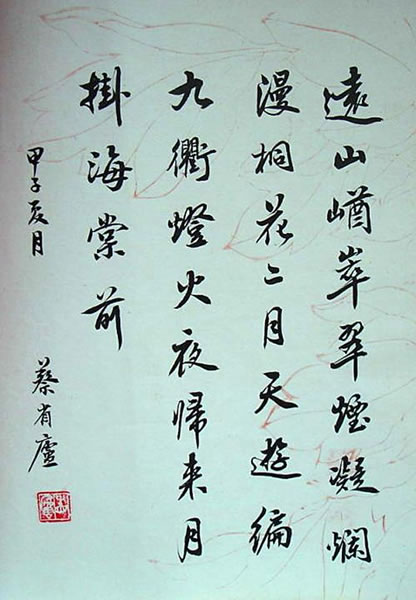 遠山崷崒翠煙凝爛
漫桐花二月天遊編
九衢燈火夜歸來月
掛海棠前
甲子夏月
蔡省廬